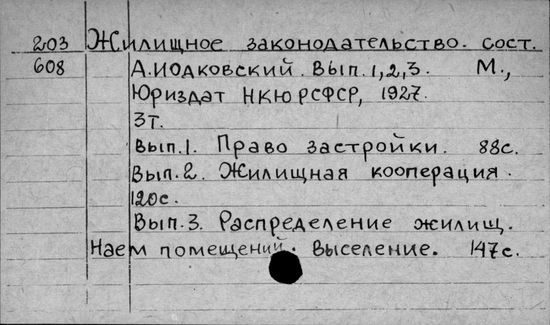 203 Жилищное законодательство. сост.
608 А.Иодковский. Вып.1,2,3. М.,
Юриздат НКЮРСФСР, 1927.
3т.
Вып.1. Право застройки. 88с.
Вып.2. Жилищная кооперация.
120с.
Вып.3. Распределение жилищ.
Наем помещений. Выселение. 147с.